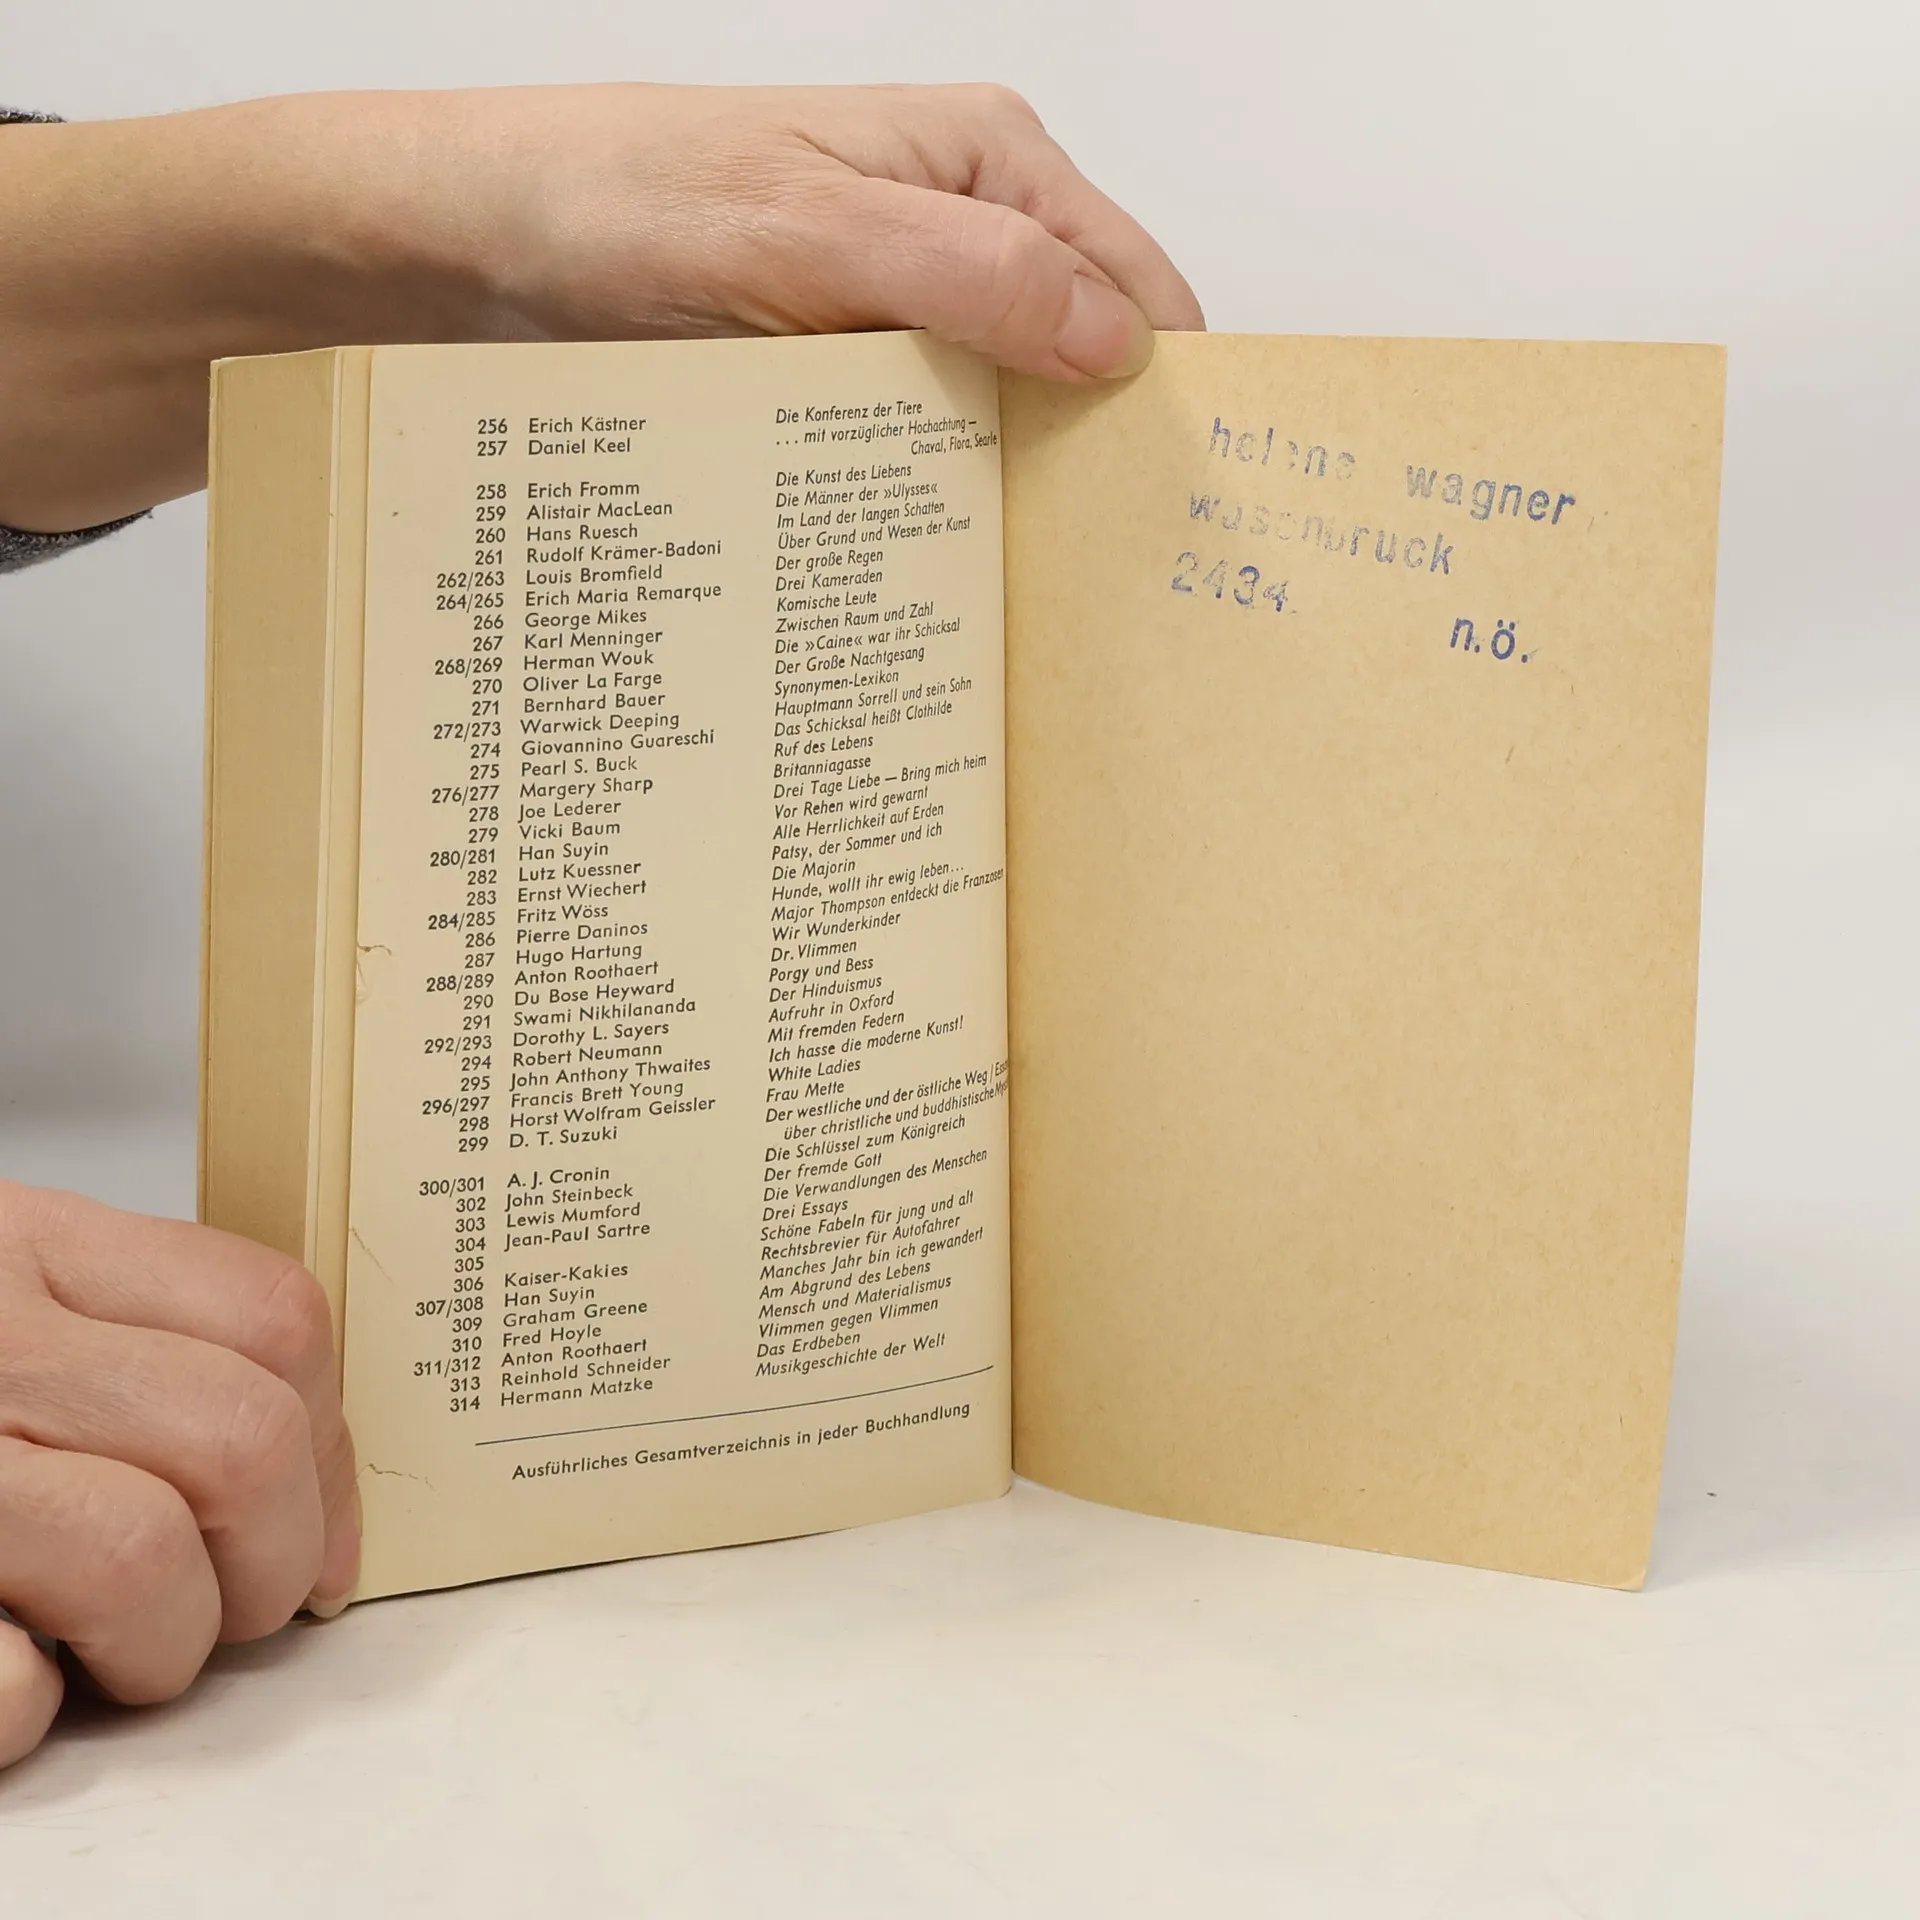 256 Erich Kästner Die Konferenz der Tiere
257 Daniel Keel . . . mit vorzüglicher Hochachtung –
Chaval, Flora, Searle
258 Erich Fromm Die Kunst des Liebens
259 Alistair MacLean Die Männer der »Ulysses«
260 Hans Ruesch Im Land der langen Schatten
261 Rudolf Krämer-Badoni Über Grund und Wesen der Kunst
262/263 Louis Bromfield Der große Regen
264/265 Erich Maria Remarque Drei Kameraden
266 George Mikes Komische Leute
267 Karl Menninger Zwischen Raum und Zahl
268/269 Herman Wouk Die »Caine« war ihr Schicksal
270 Oliver La Farge Der Große Nachtgesang
271 Bernhard Bauer Synonymen-Lexikon
272/273 Warwick Deeping Hauptmann Sorrell und sein Sohn
274 Giovannino Guareschi Das Schicksal heißt Clothilde
275 Pearl S. Buck Ruf des Lebens
276/277 Margery Sharp Britanniagasse
278 Joe Lederer Drei Tage Liebe – Bring mich heim
279 Vicki Baum Vor Rehen wird gewarnt
280/281 Han Suyin Alle Herrlichkeit auf Erden
282 Lutz Kuessner Patsy, der Sommer und ich
283 Ernst Wiechert Die Majorin
284/285 Fritz Wöss Hunde, wollt ihr ewig leben...
286 Pierre Daninos Major Thompson entdeckt die Franzosen
287 Hugo Hartung Wir Wunderkinder
288/289 Anton Roothaert Dr. Vlimmen
290 Du Bose Heyward Porgy und Bess
291 Swami Nikhilananda Der Hinduismus
292/293 Dorothy L. Sayers Aufruhr in Oxford
294 Robert Neumann Mit fremden Federn
295 John Anthony Thwaites Ich hasse die moderne Kunst!
296/297 Francis Brett Young White Ladies
298 Horst Wolfram Geissler Frau Mette
299 D. T. Suzuki Der westliche und der östliche Weg /
über christliche und buddhistische
300/301 A. J. Cronin Die Schlüssel zum Königreich
302 John Steinbeck Der fremde Gott
303 Lewis Mumford Die Verwandlungen des Menschen
304 Jean-Paul Sartre Drei Essays
305 Schöne Fabeln für jung und alt
306 Kaiser-Kakies Rechtsbrevier für Autofahrer
307/308 Han Suyin Manches Jahr bin ich gewandert
309 Graham Greene Am Abgrund des Lebens
310 Fred Hoyle Mensch und Materialismus
311/312 Anton Roothaert Vlimmen gegen Vlimmen
313 Reinhold Schneider Das Erdbeben
314 Hermann Matzke Musikgeschichte der Welt
Ausführliches Gesamtverzeichnis in jeder Buchhandlung
helene wagner
wasenbruck
2434
n.ö.